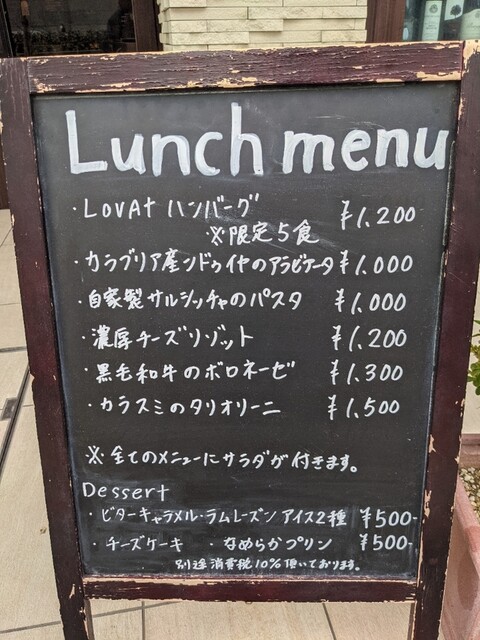 Lunch menu
・LOVAt ハンバーグ ¥1,200
※限定5食
・カラブリア産ンドゥイヤのアラビアータ ¥1,000
・自家製サルシッチャのパスタ ¥1,000
・濃厚チーズリゾット ¥1,200
・黒毛和牛のボロネーゼ ¥1,300
・カラスミのタリオリーニ ¥1,500
※全てのメニューにサラダが付きます。
Dessert
・ビターキャラメル・ラムレーズンアイス2種 ¥500-
・チーズケーキ ・なめらかプリン ¥500-
別途消費税10%頂いております。